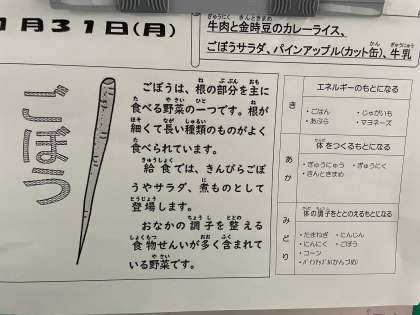 1月31日(月)
牛肉と金時豆のカレーライス、
ごぼうサラダ、パインアップル(カット缶)、牛乳
ごぼう
ごぼうは、根の部分を主に
食べる野菜の一つです。根が
細くて長い種類のものがよく
食べられています。
給食では、きんぴらごぼ
うやサラダ、煮ものとして
登場します。
おなかの調子を整える
食物せんいが多く含まれて
いる野菜です。
き
エネルギーのもとになる
・ごはん ・じゃがいも
・あぶら ・マヨネーズ
あか
体をつくるもとになる
・ぎゅうにゅう ・ぎゅうにく
・きんときまめ
みどり
体の調子をととのえるもとになる
・たまねぎ ・にんじん
・にんにく ・ごぼう
・コーン
・パインアップル(かんづめ)